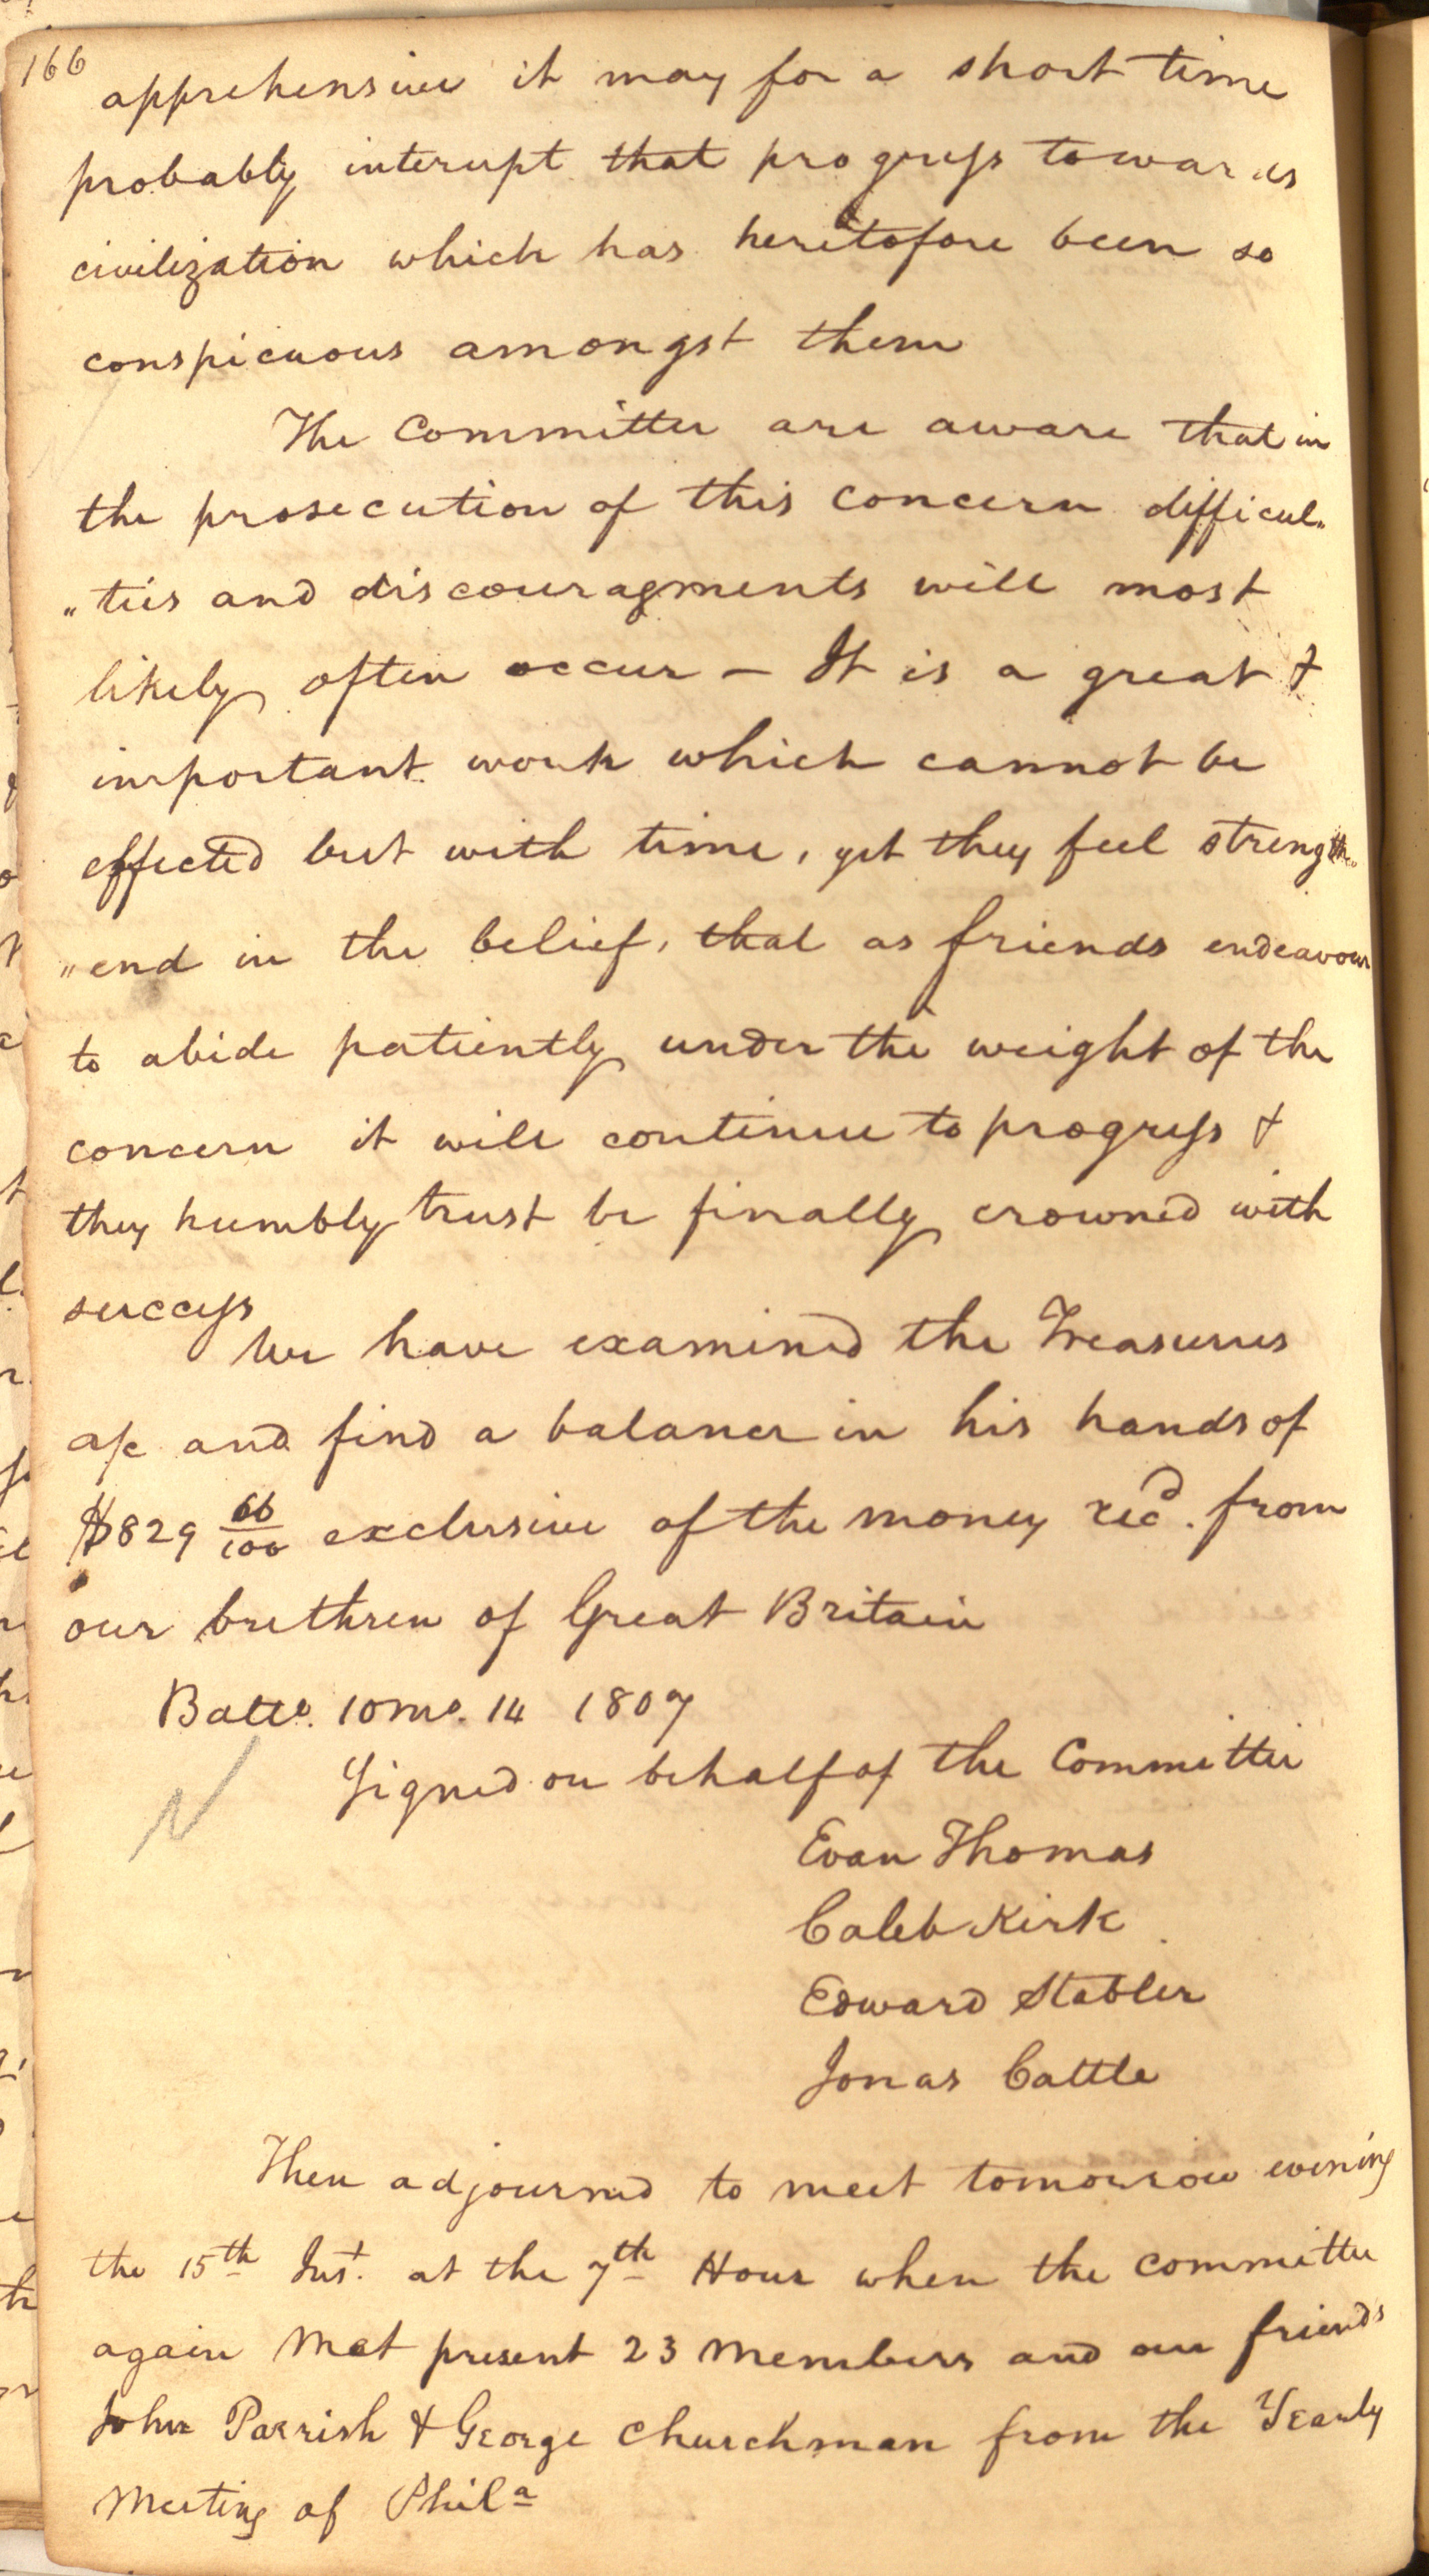 166
apprehensive it may for a short time
probably interupt that progress towards
civilization which has heretofore been so
conspicuous amongst them
The Committee are aware that in
the prosecution of this concern difficul„
„ties and discouragments will most
likely often occur – It is a great &
important work which cannot be
effected but with time, yet they feel strengthe„
„end in the belief, that as friends endeavour
to abide patiently under the weight of the
concern it will continue to progress &
they humbly trust be finally crowned with
success
We have examined the Treasurers
a/c and find a balance in his hands of
$829 66/100 exclusive of the money recd. from
our brethren of Great Britain
Balto. 10mo. 14 1807
Signed on behalf of the Committee
Evan Thomas
Caleb Kirk
Edward Stabler
Jonas Cattle
Then adjourned to meet tomorrow evening
the 15th Inst. at the 7th Hour when the committee
again Met present 23 Members and our friends
John Parrish & George Churchman from the Yearly
Meeting of Phila